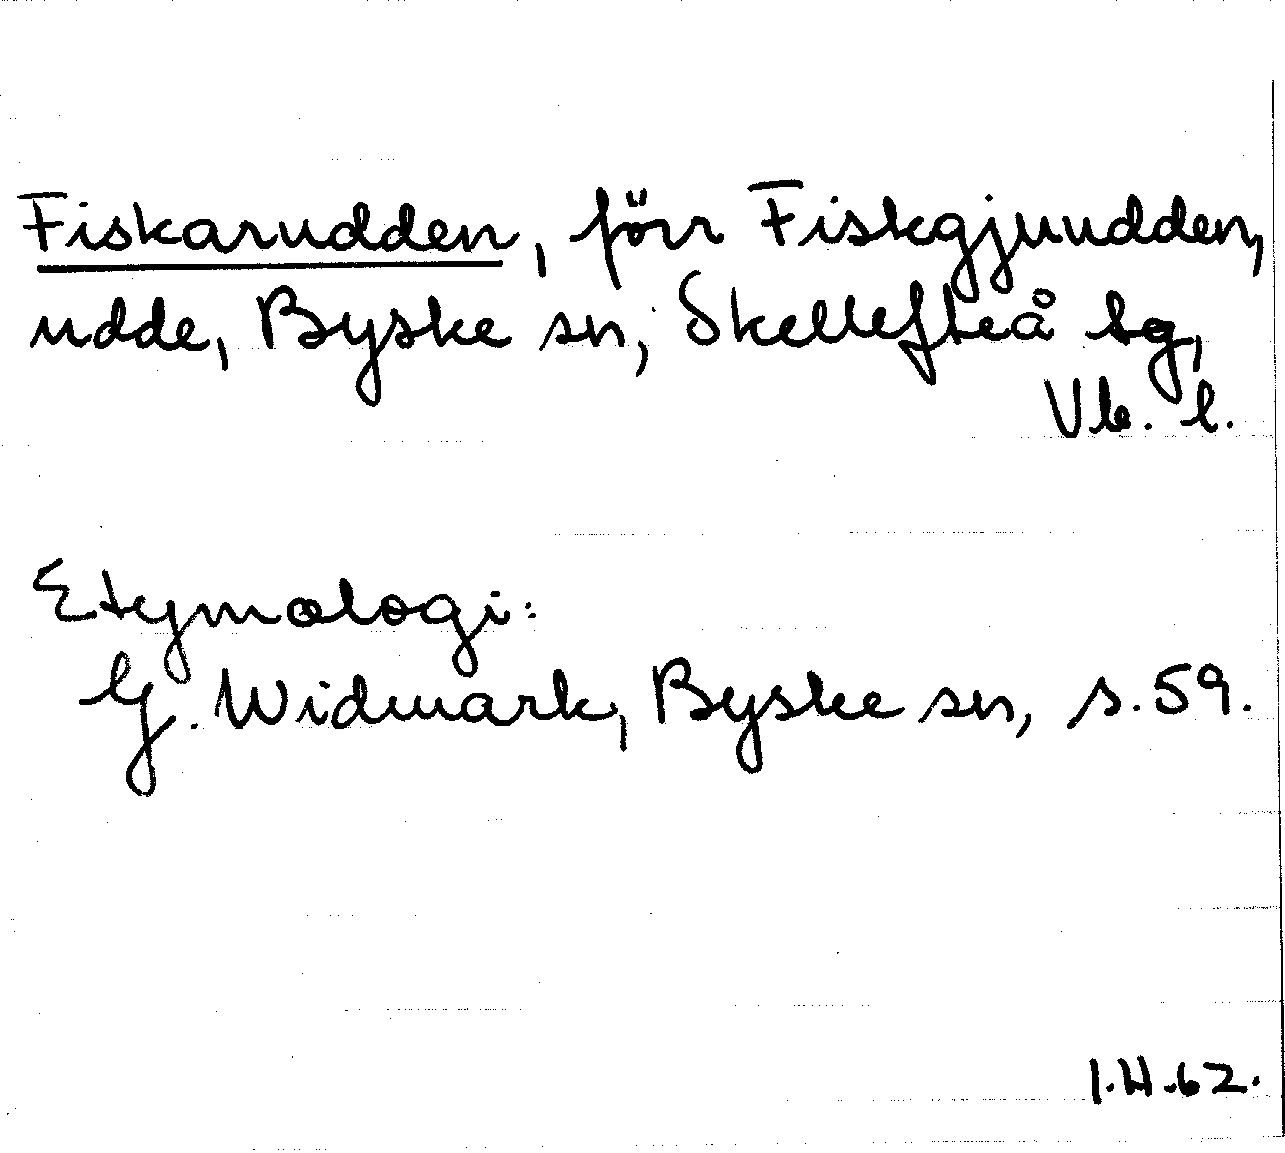 Fiskarudden, förr Fiskgjuudden,
udde, Byske sn, Skellefteå tg,
Vb. l.
Etymologi:
G. Widmark, Byske sn, s. 59.
I.H.62.